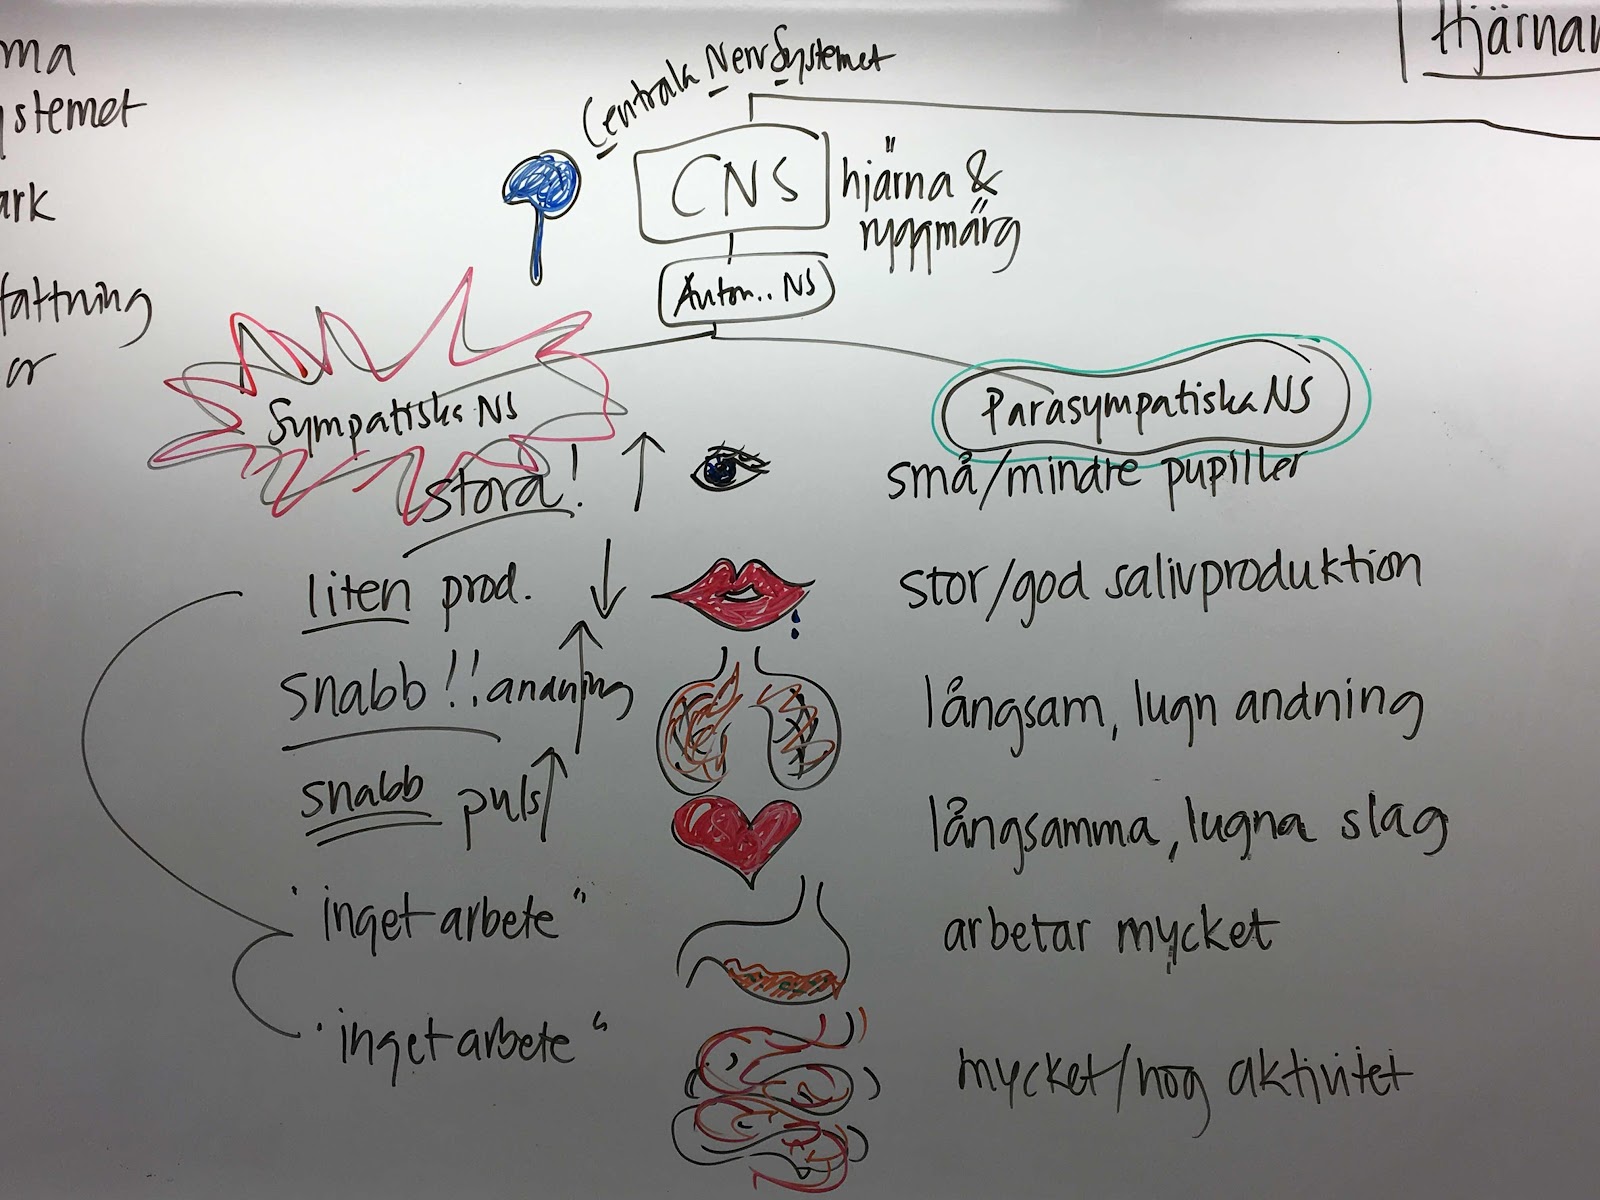 ma
ystemet
ark
fattning
er
Hjärnan
Centrala NervSystemet
CNS
hjärna &
ryggmärg
Auton.. NS
Sympatiska NS
Parasympatiska NS
stora!
små/mindre pupiller
liten prod.
stor/god salivproduktion
snabb!! andning
långsam, lugn andning
snabb puls
långsamma, lugna slag
"inget arbete"
arbetar mycket
"inget arbete"
mycket/hög aktivitet